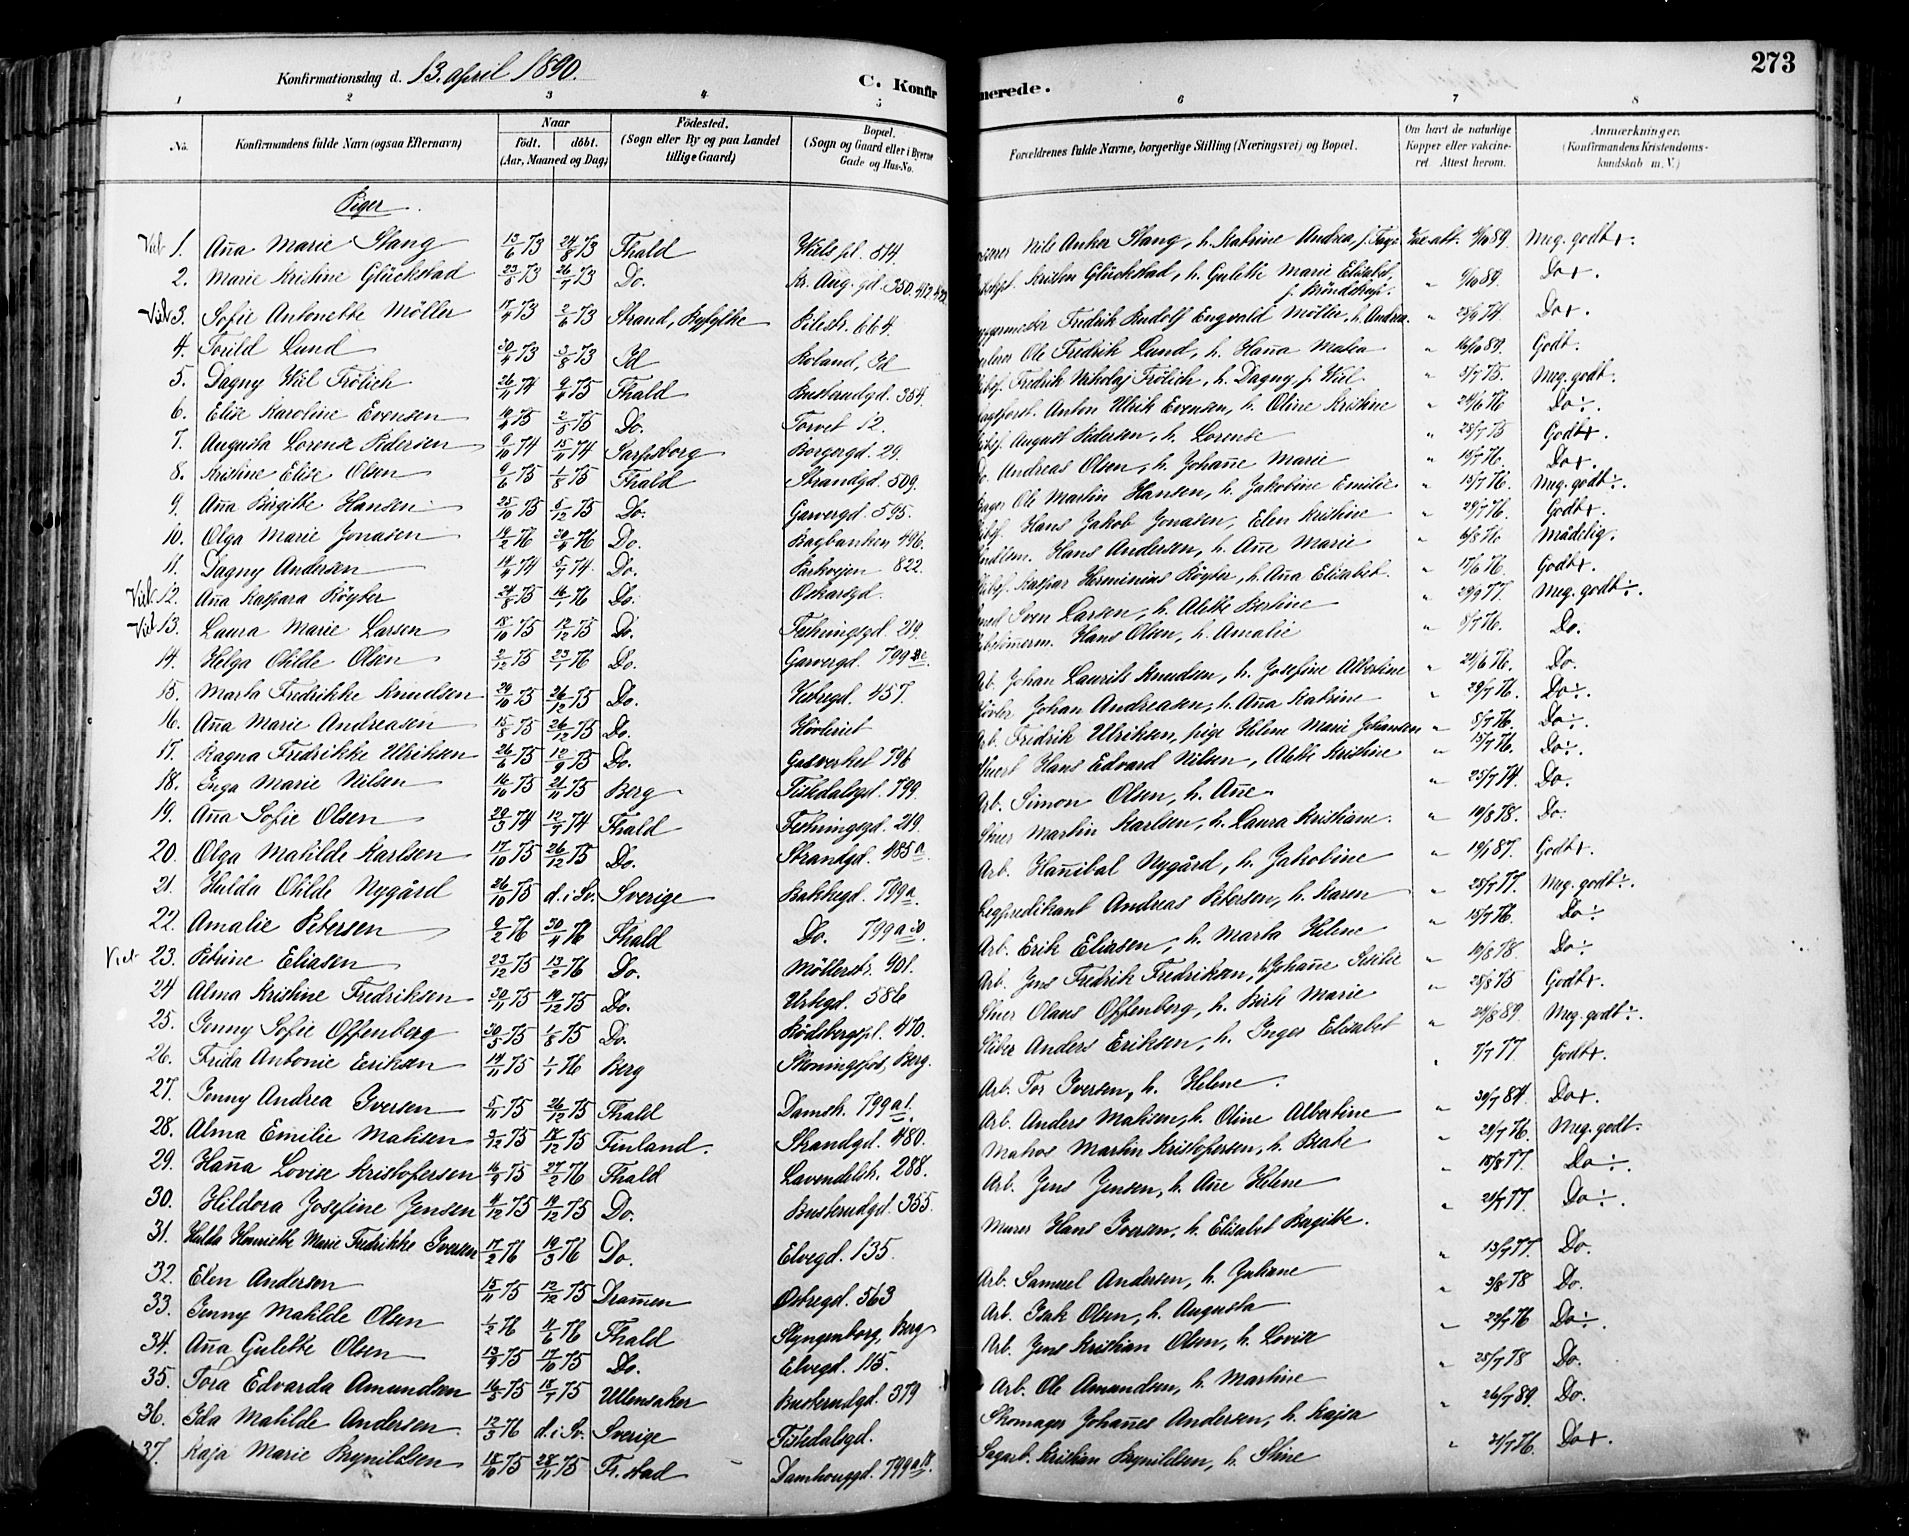 Konfirmationsdag d. 13. april 1890.
C. Konfir
merede.
273
1 2 3 4 5 6 7 8
No.
Konfirmandens fulde Navn (ogsaa Efternavn)
Naar
födt. döbt.
(Aar, Maaned og Dag)
Födested.
(Sogn eller By og paa Landet
tillige Gaard)
Bopæl.
(Sogn og Gaard eller i Byerne
Gade og Hus-No.
Forældrenes fulde Navne, borgerlige Stilling (Næringsvei) og Bopæl.
Om havt de naturlige
Kopper eller vakcine-
ret Attest herom.
Anmærkninger.
(Konfirmandens Kristendoms-
kundskab m. V.)
Piger.
1. Aña Marie Stang 13/6 73 24/8 73 Fhald Wiels pl. 514 Nils Anker Stang, h. Katrine Andrea, f. Meg. godt+.
2. Marie Kristine Glückstad 23/5 73 26/7 73 Do. Kr. Aug. gd. 350. Kristen Glückstad, h. Gulette Marie Elisabet, Do+.
3. Sofie Antonette Möller 17/4 73 2/6 73 Strand, Ryfylke Pilestr. 664. Fredrik Rudolf Engvald Möller, h. Andrea. Do+.
4. Torild Lund 30/4 73 3/8 73 Id Roland, Id Ole Fredrik Lund, h. Haña Godt.
5. Dagny Wiel Frölich 26/11 74 9/4 75 Fhald Buskrudgd. 354 Fredrik Nikolaj Frölich, h. Dagny f. Wiel " 5/7 75. Meg. godt.
6. Elise Karoline Evensen 2/5 75 Do. Torvet 12. Anton Ulrik Evensen, h. Oline Kristine " Do÷.
7. Augusta Lorense Pedersen 9/10 74 15/11 74 Sarpsborg Borgergd. 29. August Pedersen, h. Lorense " 28/7 75 Godt+.
8. Kristine Elise Olsen 9/6 75 1/8 75 Fhald Strandgd. 509. Andreas Olsen, h. Johañe Marie " Do+.
9. Aña Birgitte Hansen 25/10 75 5/12 75 Do. Garvergd. 595. Ole Martin Hansen, h. Jakobine Emilie " 13/7 76. Meg. godt÷.
10. Olga Marie Jonasen 19/2 76 Do. Bagbanken 496. Hans Jakob Jonasen, Elen Kristine " Godt+.
11. Dagny Andersen 14/4 74 5/7 74 Do. Parkvejen 822. Hans Andersen, h. Añe Marie " 6/8 76 Mådelig.
12. Aña Kaspara Röyter 24/8 75 16/1 76 Do. Oskarsgd. Kaspar Herminius Röyter, h. Aña Elisabet. " 17/6 76 Godt+.
13. Laura Marie Larsen 18/10 75 12/12 75 Do. Festningsgd. 219. Sven Larsen, h. Alette Bertine " 29/9 77. Meg. godt÷.
14. Helga Otilde Olsen 2/12 75 23/1 76 Do. Garvergd. 799 Hans Olsen, h. Amalie " 8/7 76. Do.
15. Marta Fredrikke Knudsen 29/10 75 26/12 75 Do. Vestregd. 457. Arb. Johan Laurits Knudsen, h. Josefine Albertine " 21/6 76. Do.
16. Aña Marie Andreasen 15/8 75 26/12 75 Do. Hövleriet Hövler Johan Andreasen, h. Aña Katrine " 29/7 76. Do÷.
17. Ragna Fredrikke Ulriksen 26/6 75 12/9 75 Do. Gasverket 796 Arb. Fredrik Ulriksen, pige Helene Marie Johansen " 5/7 76. Do÷.
18. Inga Marie Nilsen 16/10 75 21/11 75 Berg Tistedalsgd. 799. Hans Edvard Nilsen, Alette Kristine " 15/7 76. Do÷.
19. Aña Sofie Olsen 29/3 74 12/7 74 Fhald Festningsgd. 219. Arb. Simon Olsen, h. Añe " 25/7 74. Do.
20. Olga Matilde Karlsen 17/10 75 26/12 75 Do. Strandgd. 485a. Martin Karlsen, h. Laura Kristiane. " 19/8 78. Do.
21. Hulda Otilde Nygård 26/10 75 d. i Sv. Sverige Bakkegd. 799a. Arb. Hañibal Nygård, h. Jakobine " 19/1 87. Godt+.
22. Amalie Petersen 9/2 76 30/4 76 Fhald Do. 799a 30. Lægprædikant Andreas Petersen, h. Karen " 28/7 77. Meg. godt÷.
23. Petrine Eliasen 23/12 75 13/2 76 Do. Möllerstr. 901. Arb. Erik Eliasen, h. Marta Helene " 15/7 76. Do÷
24 Alma Kristine Fredriksen 30/11 75 19/12 75 Do. Urtegd. 586 Arb. Jens Fredrik Fredriksen, h. Johañe " 19/8 78. Do÷
25. Jenny Sofie Offenberg 30/5 75 1/8 75 Do. Rödsbergspl. 470. Olaus Offenberg, h. Marie " 28/8 75 Godt+.
26. Frida Antonie Eriksen 14/11 75 1/1 76 Berg Skoningsfos, Berg. Sliber Anders Eriksen, h. Inger Elisabet " 29/8 89. Meg. godt÷.
27. Jenny Andrea Iversen 5/11 75 26/12 75 Fhald Damstr. 799a1. Arb. Tor Iversen, h. Helene. " 7/7 77. Godt+.
28. Alma Emilie Matisen 3/12 75 17/12 75 Finland. Strandgd. 480. Arb. Anders Matisen, h. Oline Albertine " 30/7 84. Do+.
29. Haña Lovise Kristofersen 16/9 75 27/2 76 Fhald Lavendelstr. 288. Matros Martin Kristofersen, h. Beate " 29/7 76. Meg. godt.
30. Hildora Josefine Jensen 4/12 75 19/12 75 Do. Buskrudgd. 355. Arb. Jens Jensen, h. Añe Helene " 18/8 77. Do÷.
31. Hulda Henriette Marie Fredrikke Iversen 17/2 76 19/3 76 Do. Elvegd. 135. Murer Hans Iversen, h. Elisabet Bagitte. " 21/7 77. Do÷.
32. Elen Andersen 15/11 75 12/12 75 Drañen Østregd. 563 Arb. Samuel Andersen, h. Juliane " 13/7 77. Do.
33. Jenny Matilde Olsen 1/2 76 4/6 76 Fhald Styngenborg, Berg Arb. Isak Olsen, h. Augusta " 3/8 78 Do.
34. Aña Gulette Olsen 13/9 75 17/10 75 Do. Elvegd. 115. Arb. Jens Kristian Olsen, h. Lovise " 22/7 76 Do÷.
35. Tora Edvarda Amundsen 16/5 75 18/7 75 Ullensaker Buskrudgd. 379 Arb. Ole Amundsen, h. Martine " 25/7 78 Do.
36. Ida Matilde Andersen 12/3 76 d. i Sv. Sverige Tistedalsgd. Skomager Johañes Andersen, h. Kajsa " 26/7 89. Do.
37. Kaja Marie Brynildsen 18/10 75 28/11 75 Fr.stad Damhauggd. 799a 18. Sagarb. Kristian Brynildsen, h. Stine " 21/7 76. Do+.